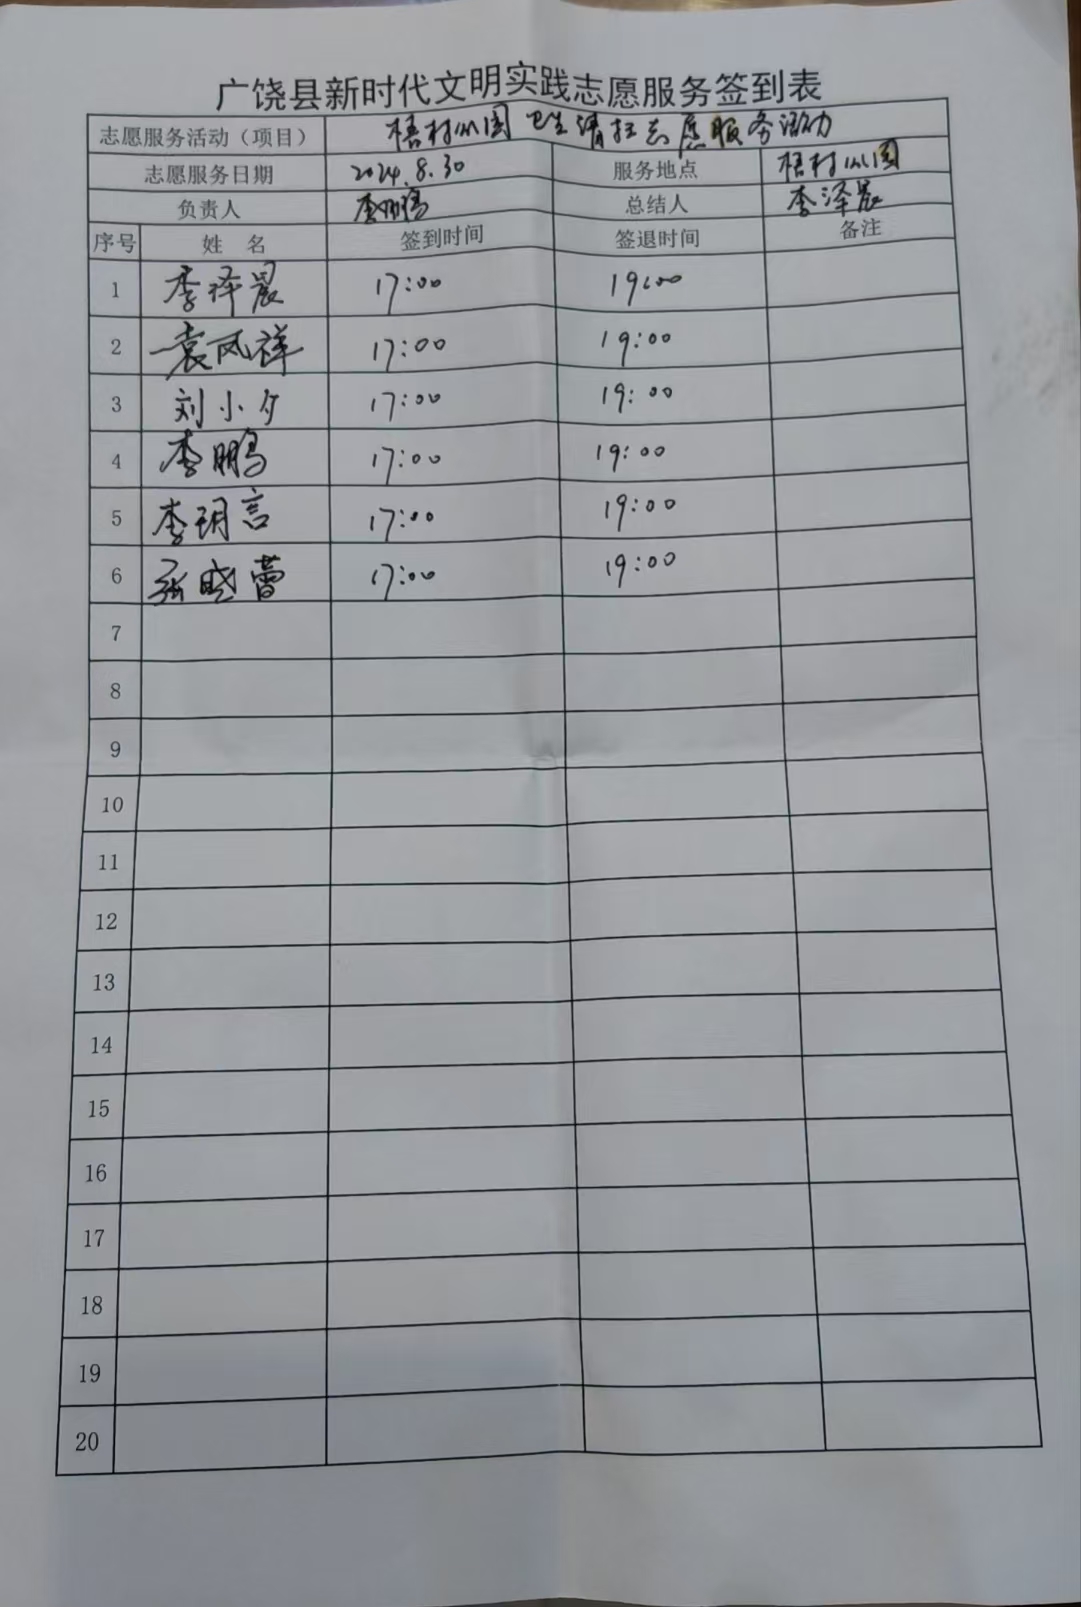 广饶县新时代文明实践志愿服务签到表
志愿服务活动（项目） 梧村公园卫生清扫志愿服务活动
志愿服务日期 2024.8.30 服务地点 梧村公园
负责人 李鹏 总结人 李泽晨
序号 姓 名 签到时间 签退时间 备注
1 李泽晨 17:00 19:00
2 袁凤祥 17:00 19:00
3 刘小夕 17:00 19:00
4 李鹏 17:00 19:00
5 李玥言 17:00 19:00
6 张晓蕾 17:00 19:00
7
8
9
10
11
12
13
14
15
16
17
18
19
20